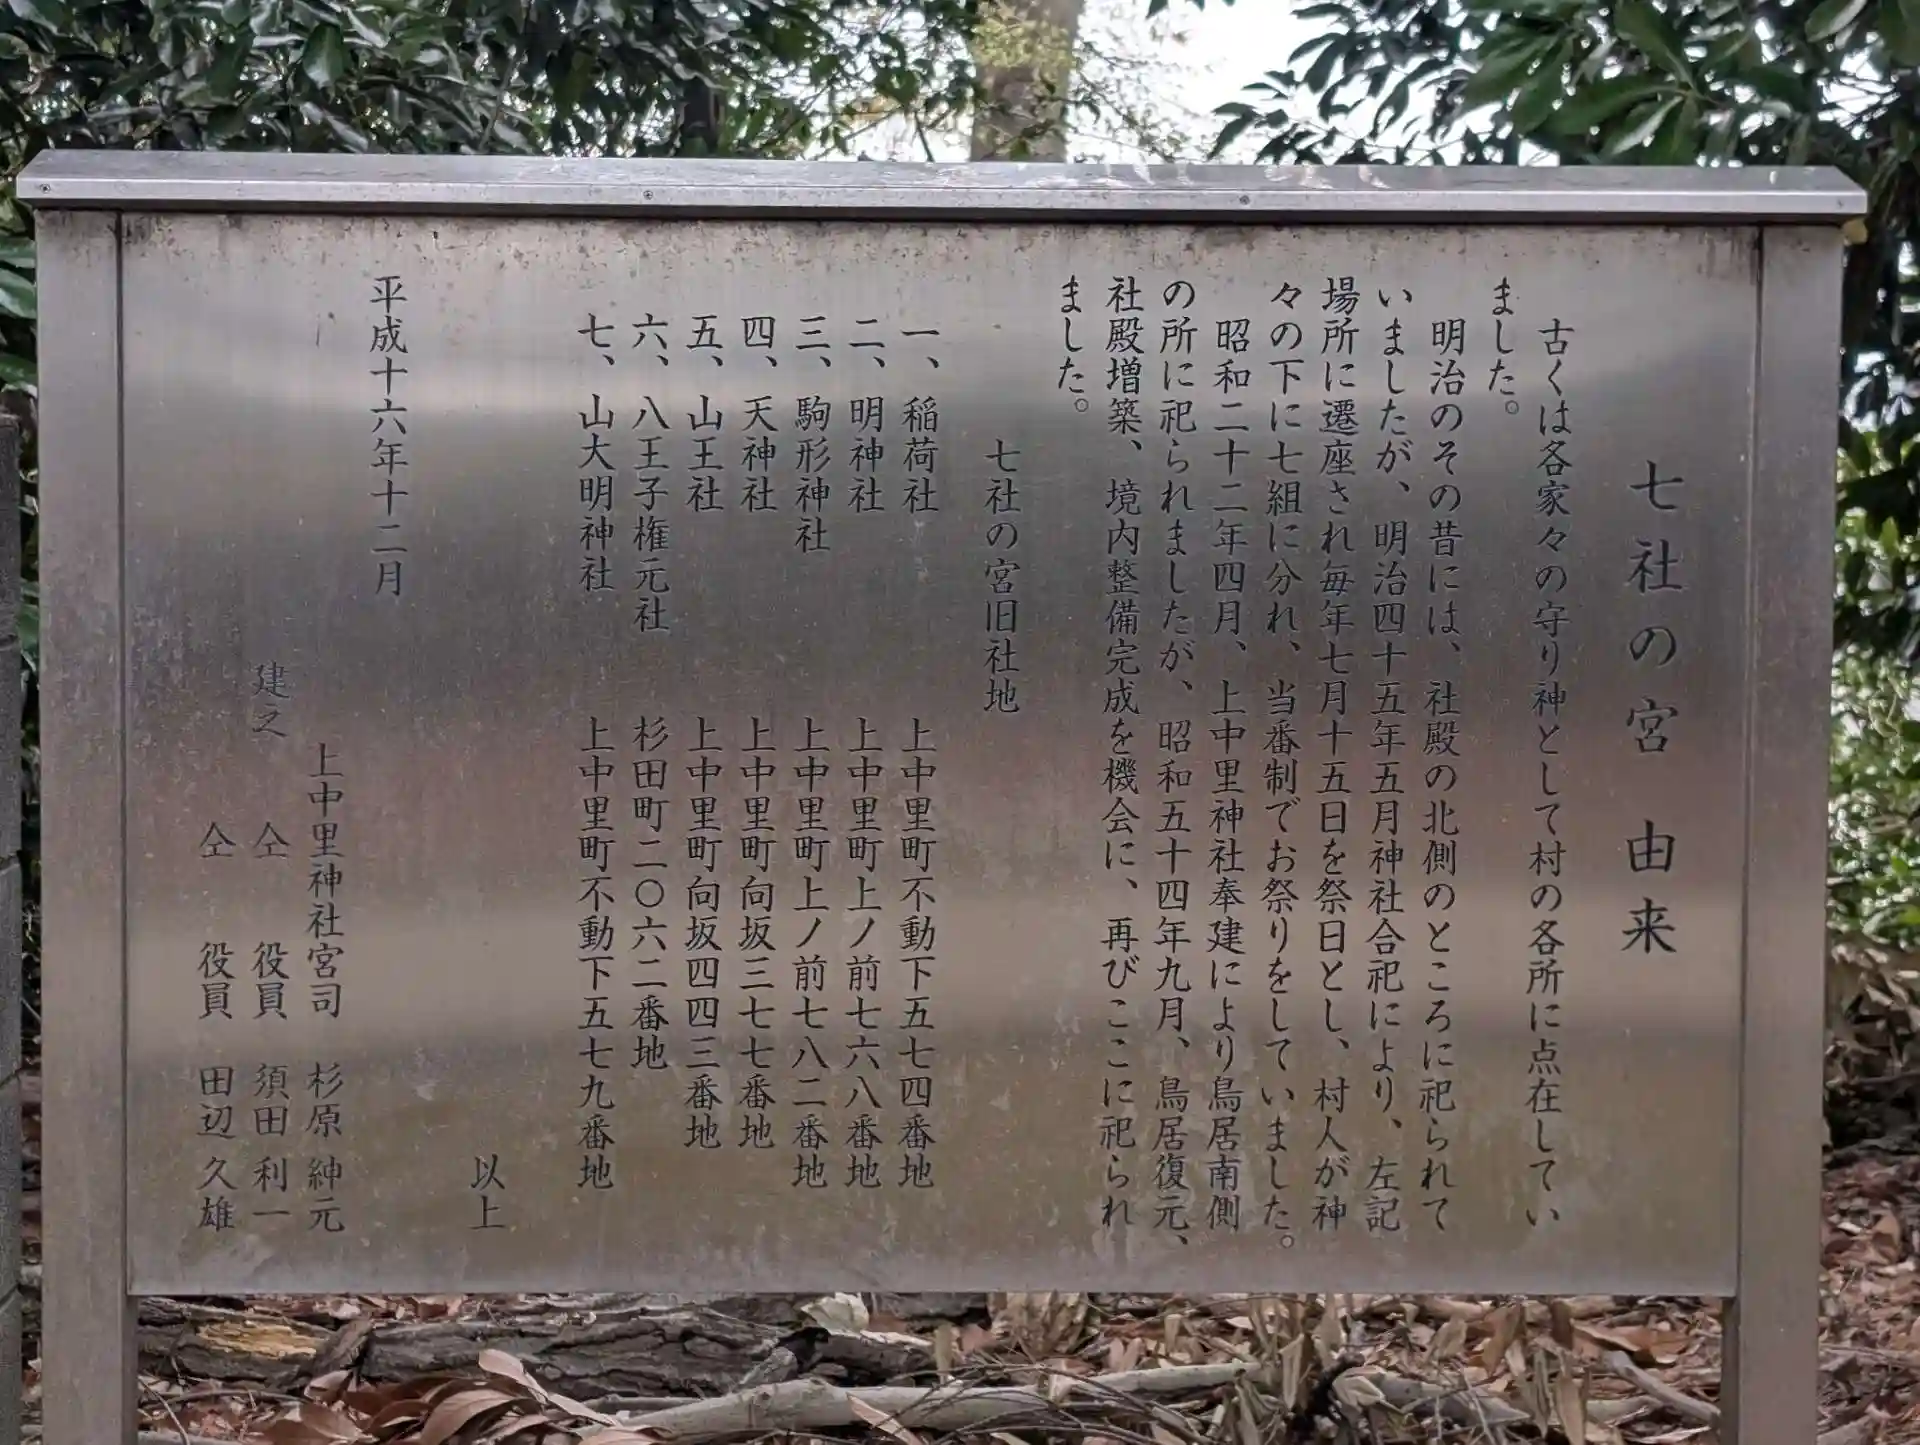 七社の宮 由来
古くは各家々の守り神として村の各所に点在してい
ました。
明治のその昔には、社殿の北側のところに祀られて
いましたが、明治四十五年五月神社合祀により、左記
場所に遷座され毎年七月十五日を祭日とし、村人が神
々の下に七組に分れ、当番制でお祭りをしていました。
昭和二十二年四月、上中里神社奉建により鳥居南側
の所に祀られましたが、昭和五十四年九月、鳥居復元、
社殿増築、境内整備完成を機会に、再びここに祀られ
ました。
七社の宮旧社地
一、稲荷社 上中里町不動下五七四番地
二、明神社 上中里町上ノ前七六八番地
三、駒形神社 上中里町上ノ前七八二番地
四、天神社 上中里町向坂三七七番地
五、山王社 上中里町向坂四四三番地
六、八王子権元社 杉田町二〇六二番地
七、山大明神社 上中里町不動下五七九番地
以上
平成十六年十二月
上中里神社宮司 杉原 紳元
建之 仝 役員 須田 利一
仝 役員 田辺 久雄